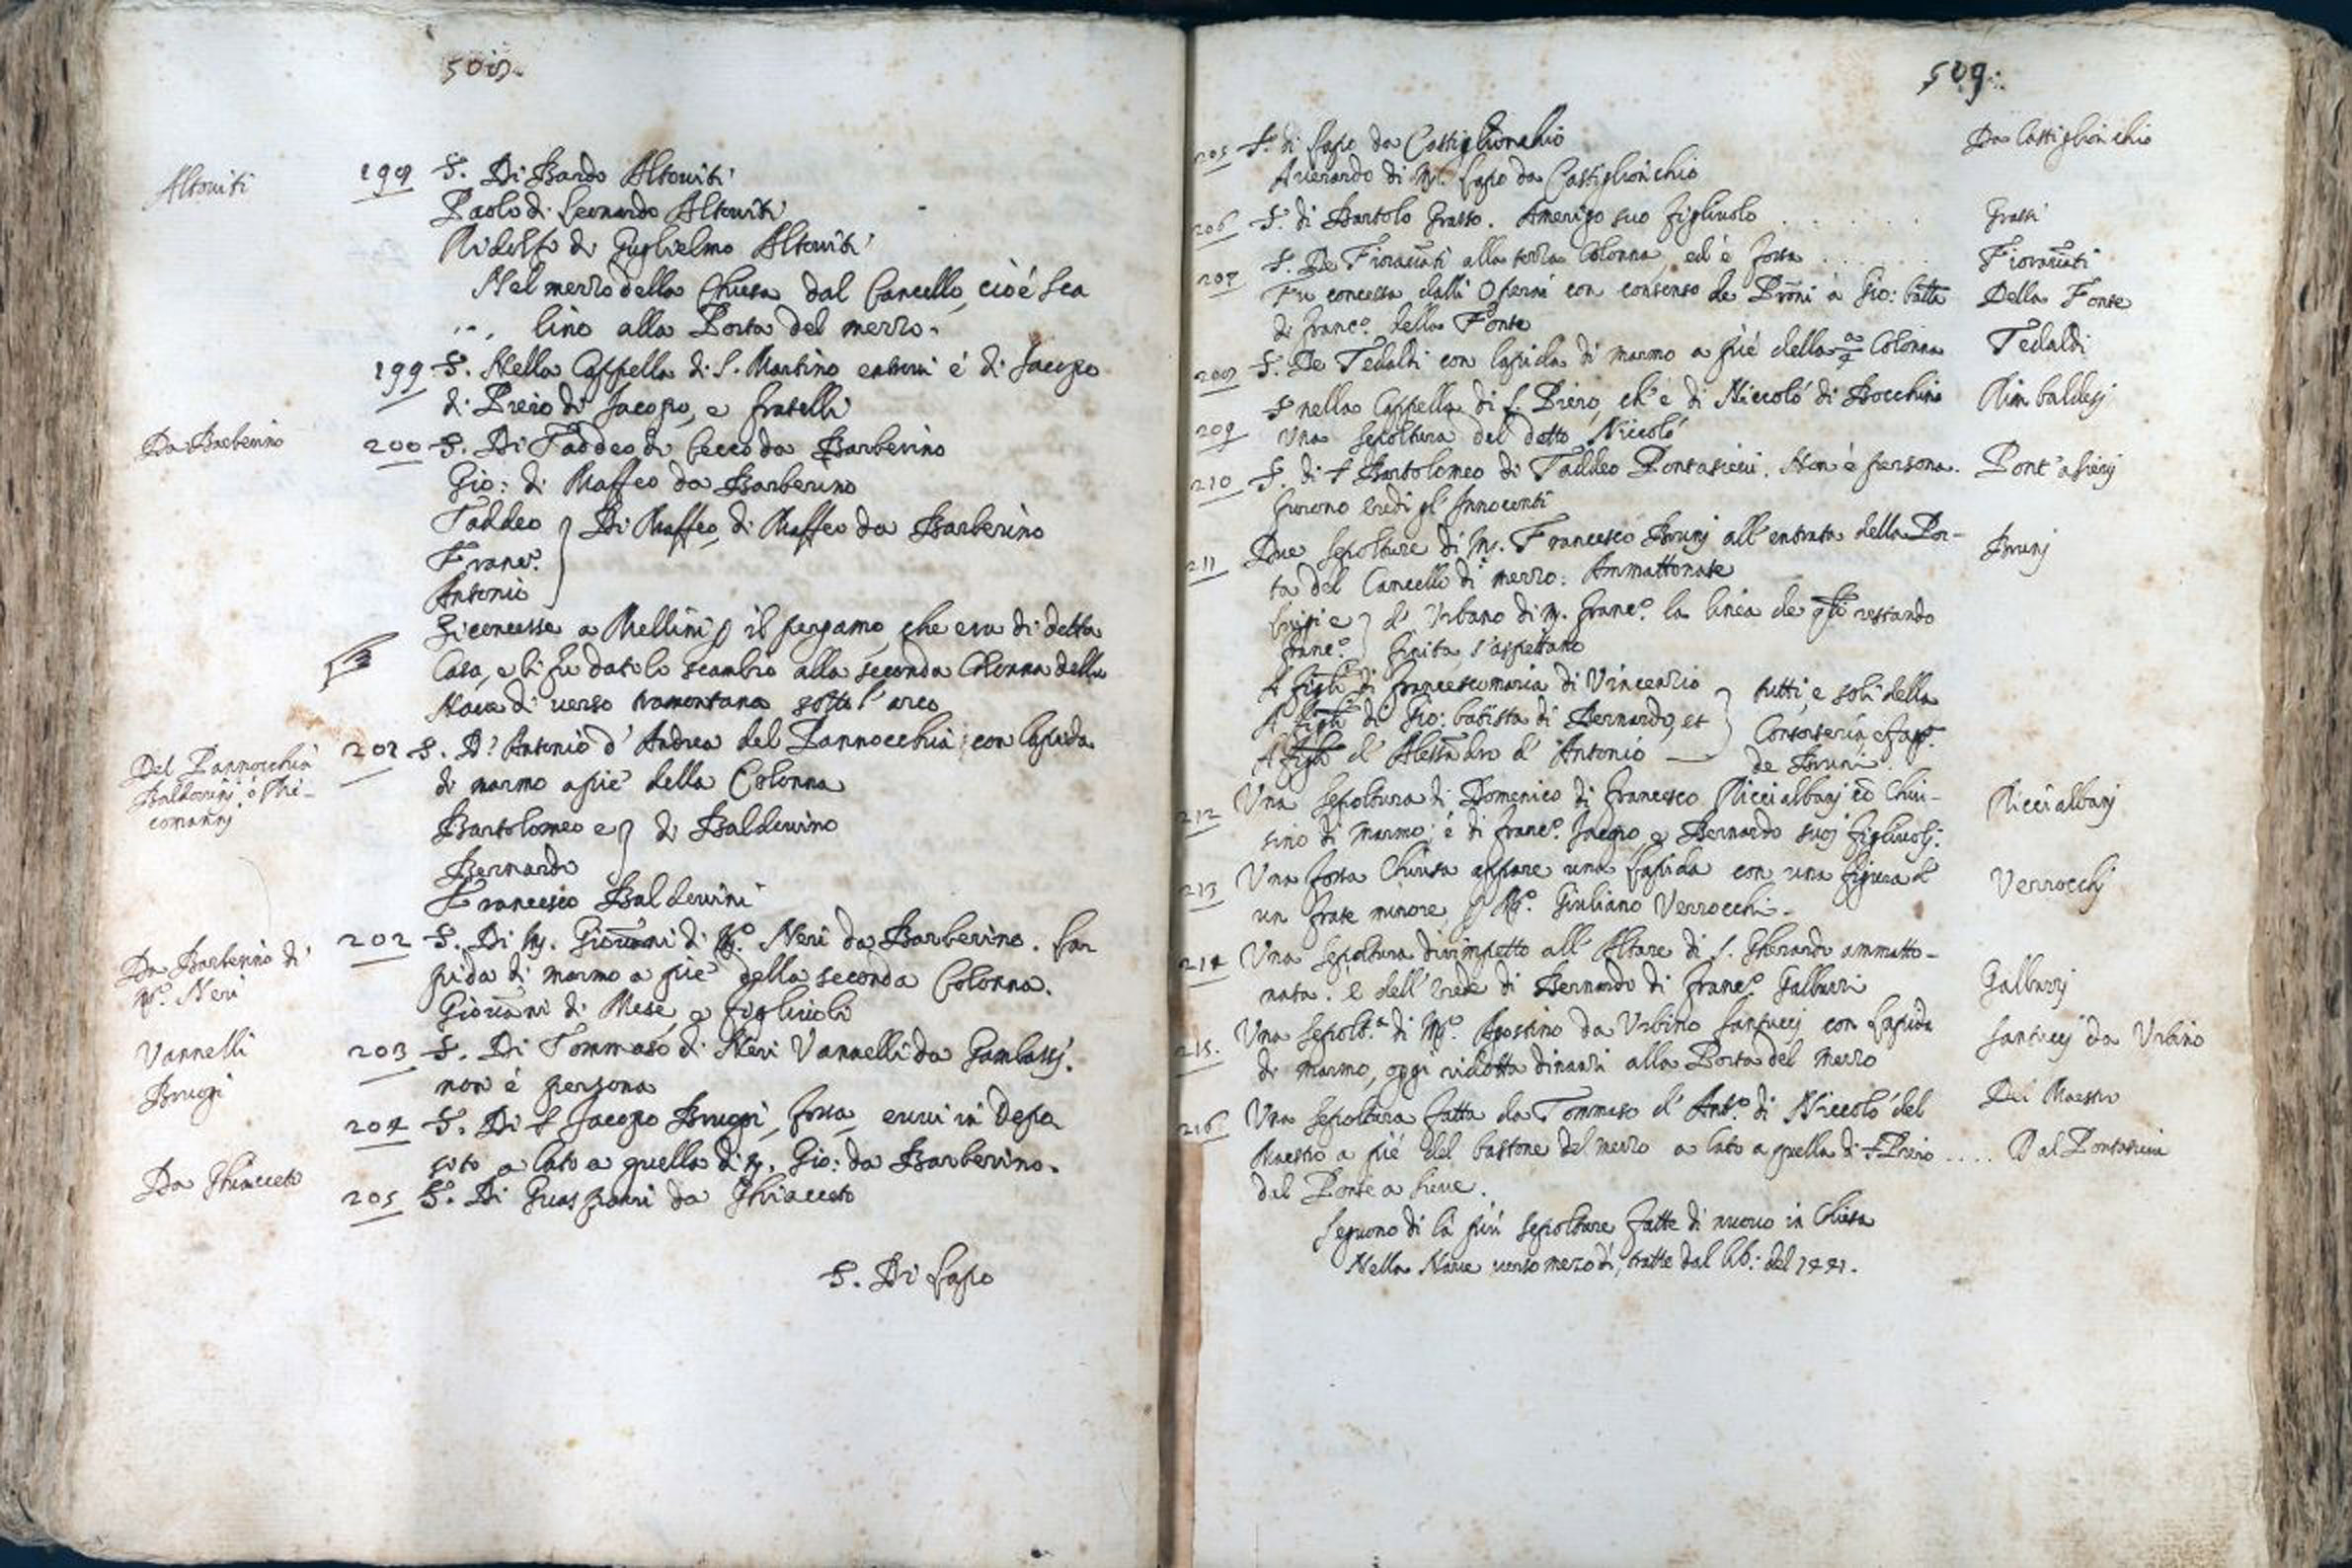 508.
Altoviti
199 S. Di Bardo Altoviti
Paolo di Leonardo Altoviti
Ridolfo di Guglielmo Altoviti
Nel mezzo della Chiesa dal Cancello, cioè sca
lino alla Porta del mezzo.
199 S. Nella Cappella di S. Martino è di Jacopo
di Piero di Jacopo, e fratelli
Da Barberino
200 S. Di Taddeo di Cecco da Barberino
Gio: di Maffeo da Barberino
Taddeo } Di Maffeo di Maffeo da Barberino
Franc.o
Antonio
Si concesse a Mellini il pergamo, che era di detta
Casa, e li fu dato lo scambio alla seconda Colonna della
Nave di verso tramontana sotto l'arco
Del Pannocchia
Baldovinj ò Chi-
comannj
201 S. D'Antonio d'Andrea del Pannocchia con lapida
di marmo a piè della Colonna
Bartolomeo e } di Baldovino
Bernardo
Francesco Baldovini
Da Barberino di
M.o Neri
202 S. Di M. Giovāni di M.o Neri da Barberino. La
pida di marmo a piè della seconda Colonna.
Giovāni di Mese e figliuoli
Vannelli
203 S. Di Tommaso di Neri Vannelli da Gambassj.
non è persona
Brugi
204 S. Di S Jacopo Brugi, fossa, evvi in depo
sito a lato a quella di M. Gio: da Barberino.
Da Ghiacceto
205 S. Di Guasparri da Ghiacceto
S. Di Lapo
509.
205 S. di Lapo da Castiglionchio
Da Castiglionchio
Averardo di M. Lapo da Castiglionchio
206 S. di Bartolo Grasso. Amerigo suo figliuolo . . . . . .
Grassi
207 S. De Fioravāti alla terza Colonna, ed è fossa . . . . .
Fioravāti
Fu concessa dalli Operai con consenso de Prōni à Gio: batta
Della Fonte
di Franc.o della Fonte
S. De Tedaldi con lapida di marmo a piè della 4a Colonna
Tedaldi
209 S nella Cappella di S. Piero, ch'è di Niccolò di Bocchino
Rimbaldesj
Una sepoltura del detto Niccolò
210 S. di S Bartolomeo di Taddeo Pontasievi. Non è persona.
Pont'asievj
furono eredi gl'Innocenti
211 Due sepolture di M. Francesco Brunj all'entrata della Por-
Brunj
ta del Cancello di mezzo: Ammattonate
Luigi e } d'Urbano di M. Franc.o la linea de qli restando
Franc.o } finita, s'aspettano
A figli di Francescomaria di Vincenzio } tutti, e soli della
A figli di Gio: batista di Bernardo, et } Consorteria, e fag.
A figli d'Alessādro d'Antonio } de Bruni.
212 Una sepoltura di Domenico di Francesco Riccialbanj cō Chiu-
Riccialbanj
sino di marmo; è di Franc.o Jacopo e Bernardo suoj figliuolj:
213 Una fossa chiusa appare una lapida con una figura d'
Verrocchj
un frate minore, M.o Giuliano Verrocchi -
214 Una sepoltura dirimpetto all'Altare di S. Gherardo ammatto-
nata. è dell'erede di Bernardo di Franc.o Galluzzi
Galluzzj
215. Una sepolt.a di M.o Agostino da Urbino Santuccj con lapida
Santuccj da Urbino
di marmo, oggi ridotta dinanzi alla Porta del mezzo
216 Una sepoltura fatta da Tommaso d'Ant.o di Niccolò del
Del Maestro
Maestro a piè del bastone del mezzo a lato a quella di S Piero . . . .
Dal Pontasieve
dal Ponte a sieve.
Seguono di là più sepolture fatte di nuovo in Chiesa
Nella Nave verso mezodì, tratte dal lib: del 1441.